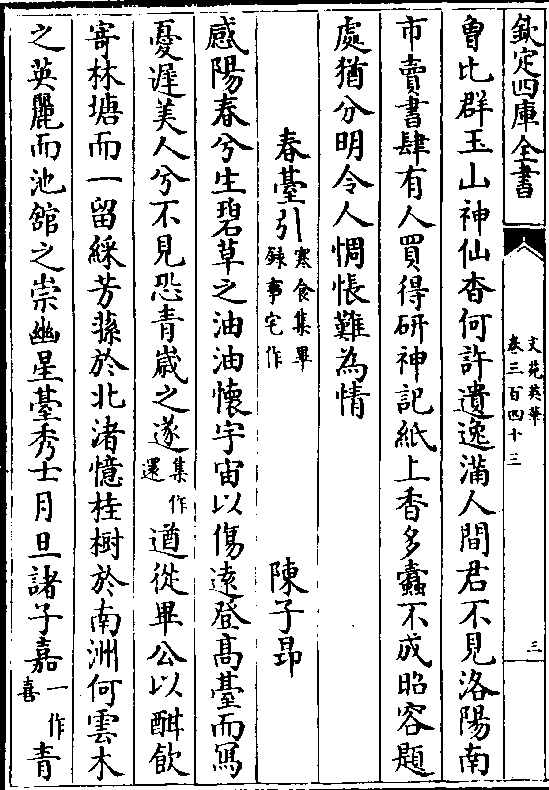 欽定四庫全書
文苑英華
卷三百四十三
三
曽比群玉山神仙杳何許遺逸滿人間君不見洛陽南
市賣書肆有人買得研神記紙上香多蠹不成昭容題
處猶分明令人惆悵難為情
春臺引寒食集畢錄事宅作 陳子昂
感陽春兮生碧草之油油懷宇宙以傷遠登髙臺而寫
憂遲美人兮不見恐青歲之遂集作還遒從畢公以酣飲
寄林塘而一留綵芳蓀於北渚憶桂樹於南洲何雲木
之英麗而池館之崇幽星臺秀士月旦諸子嘉一作喜青